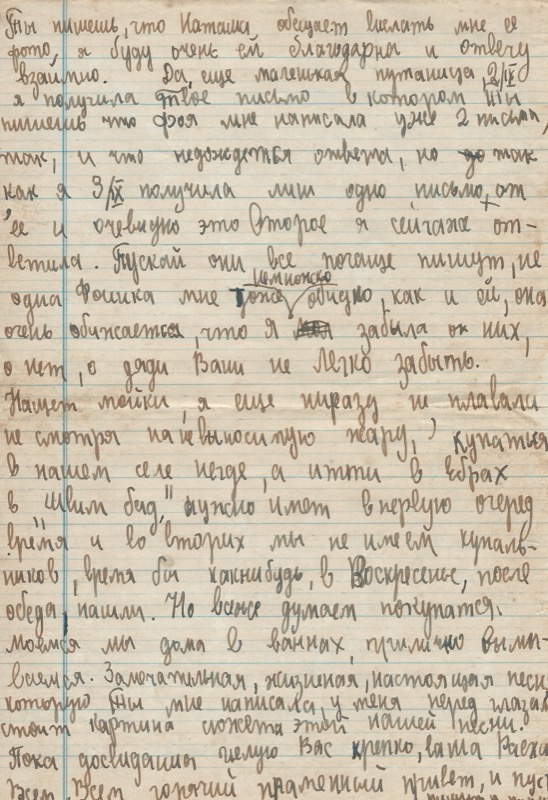 Ты пишешь, что Наташа обещает выслать мне ее
фото, я буду очень ей благодарна и отвечу
взаимно. Да, еще маленькая путаница, 2/IX
я получила твое письмо в котором Ты
пишешь что Фоя мне написала уже 2 письма,
так, и что недождеться ответа, но так
как я 3/IX получила лиш одно письмо, от
её и очевидно это второе я сейчаже от-
ветила. Пускай они все почаще пишут, не
одна Фошка мне тоже немножко обидно, как и ей, она
очень обижается, что Я забыла о них,
о нет, о дяди Ваши не легко забыть.
Нащет мойки, я еще ниразу не плавали
не смотря на невыносимую жару, купаться
в нашем селе негде, а итти в Ебрах
в "Швим бад", нужно имет в первую очеред
время и во вторих мы не имеем купаль-
ников, время бы какнибудь, в Воскресенье, после
обеда, нашли. Но думаем покупатся.
Моемся мы дома в ваннах, прилично вымы-
ваемся. Замечательная, жизненая, настоящая песня
которую Ты мне написала, у меня перед глазам
стоит картина сюжета этой нашей песни.
Пока досвидания целую Вас крепко, ваша Раеха
Всем, Всем горячий пламенный привет, и пуст